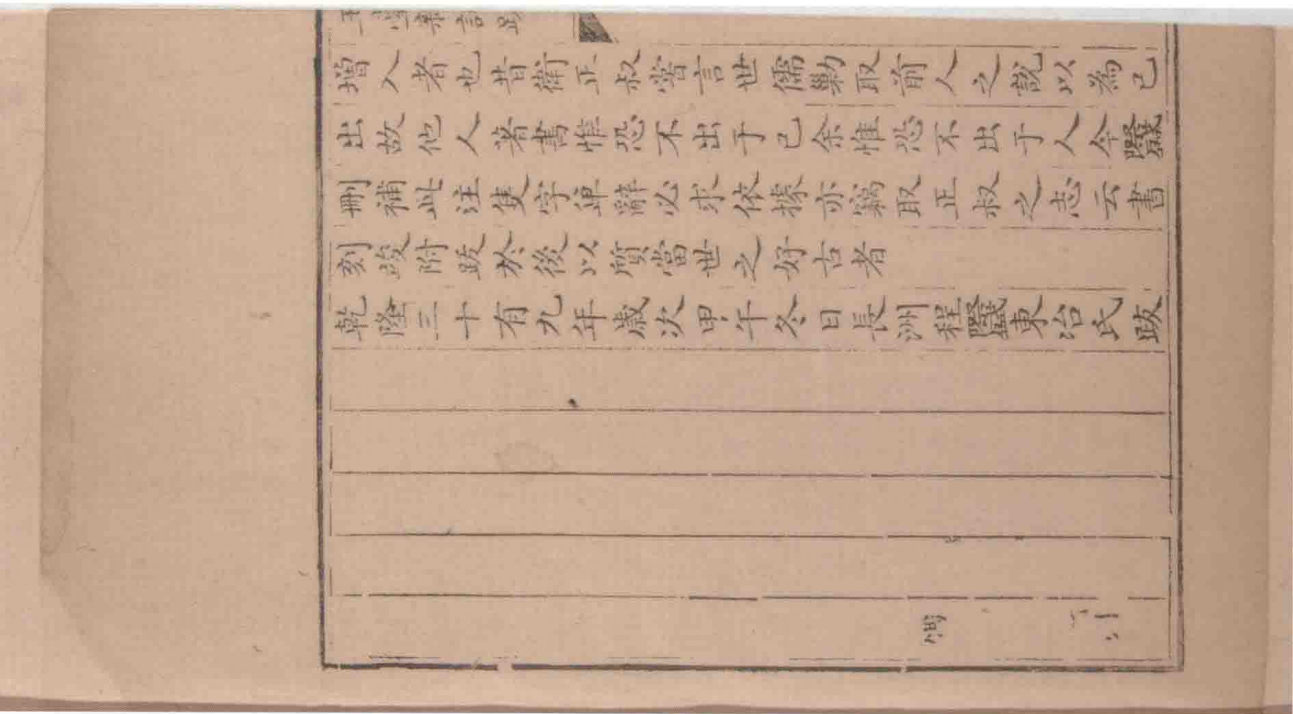 增入者也昔衛正叔嘗言世儒勦取前人之說以為己
出故他人著書惟恐不出于己余惟恐不出于人今際盛
刪補此注隻字單辭必求依據亦竊取正叔之志云書
刻竣附跋於後以質當世之好古者
乾隆三十有九年歲次甲午冬日長洲程際盛東冶氏跋